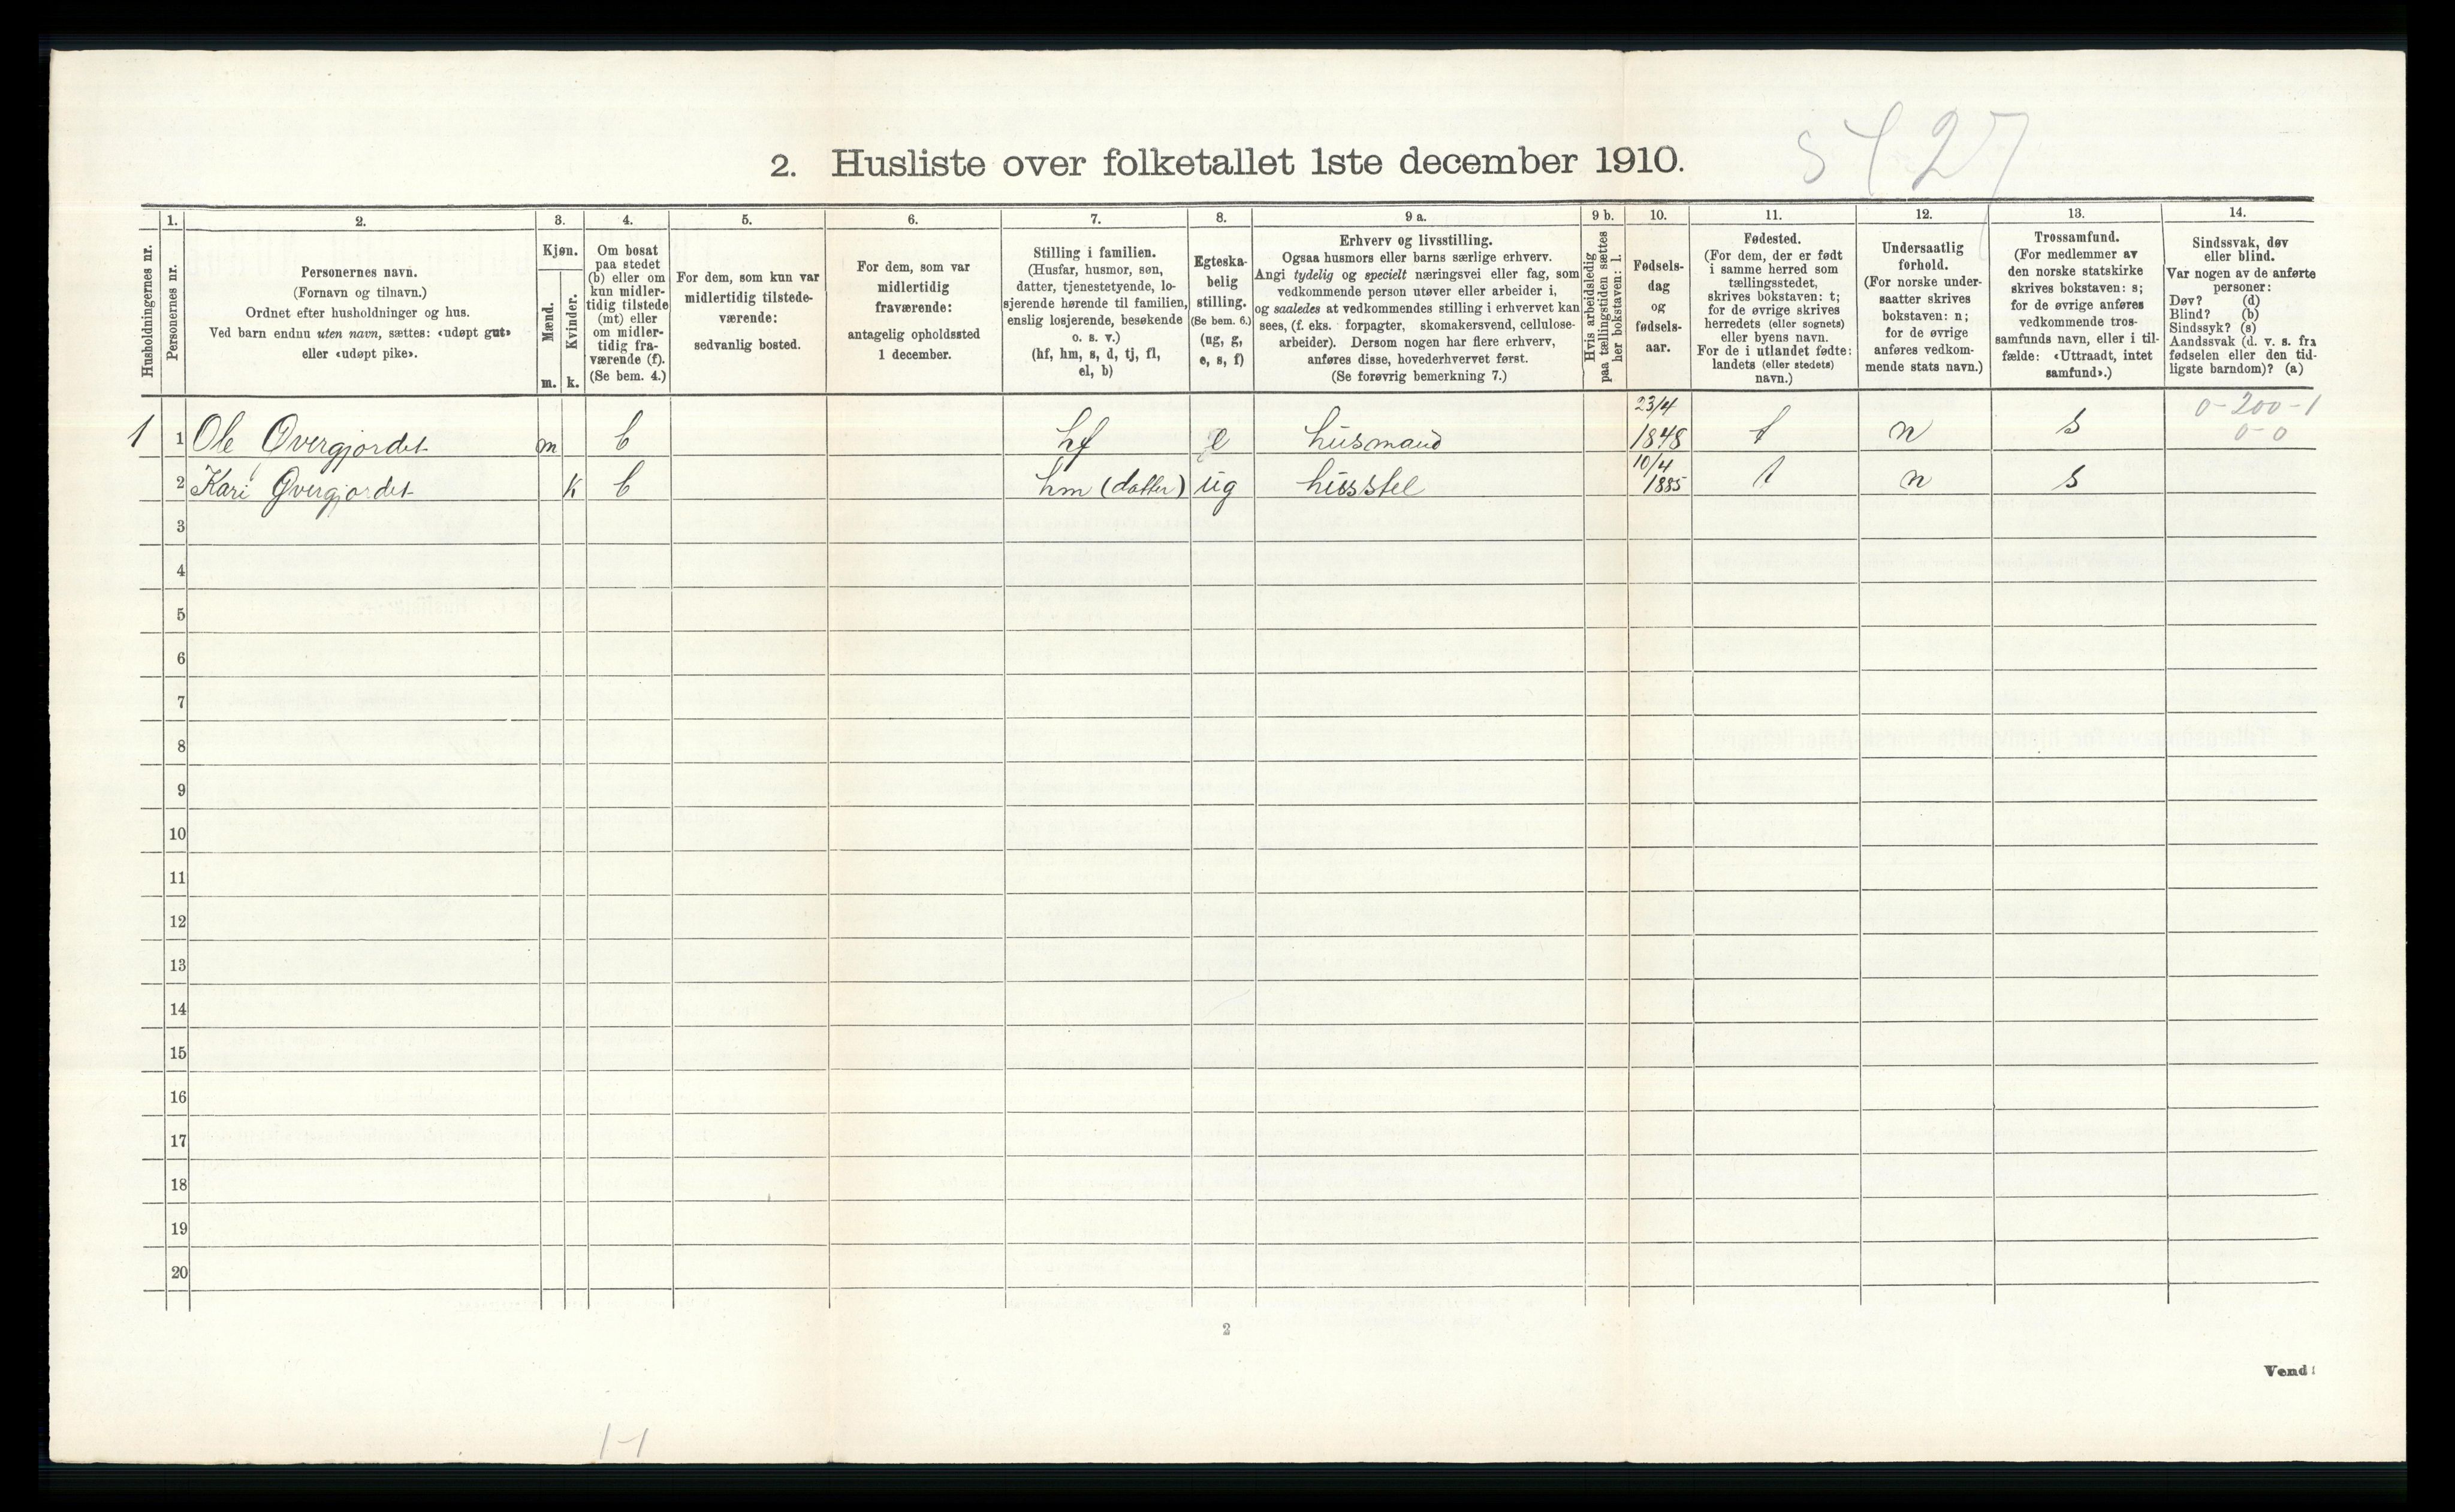 2. Husliste over folketallet 1ste december 1910.
Husholdningernes nr.
1.
Personernes nr.
2.
Personernes navn.
(Fornavn og tilnavn.)
Ordnet efter husholdninger og hus.
Ved barn endnu uten navn, sættes: «udøpt gut»
eller «udøpt pike».
3.
Kjøn.
Mænd.
Kvinder.
m. k.
4.
Om bosat
paa stedet
(b) eller om
kun midler-
tidig tilstede
(mt) eller
om midler-
tidig fra-
værende (f).
(Se bem. 4.)
5.
For dem, som kun var
midlertidig tilstede-
værende:
sedvanlig bosted.
6.
For dem, som var
midlertidig
fraværende:
antagelig opholdssted
1 december.
7.
Stilling i familien.
(Husfar, husmor, søn,
datter, tjenestetyende, lo-
sjerende hørende til familien,
enslig losjerende, besøkende
o. s. v.)
(hf, hm, s, d, tj, fl,
el, b)
8.
Egteska-
belig
stilling.
(Se bem. 6.)
(ug, g,
e, s, f)
9 a.
Erhverv og livsstilling.
Ogsaa husmors eller barns særlige erhverv.
Angi tydelig og specielt næringsvei eller fag, som
vedkommende person utøver eller arbeider i,
og saaledes at vedkommendes stilling i erhvervet kan
sees, (f. eks. forpagter, skomakersvend, cellulose-
arbeider). Dersom nogen har flere erhverv,
anføres disse, hovederhvervet først.
(Se forøvrig bemerkning 7.)
9 b.
Hvis arbeidsledig
paa tællingstiden sættes
her bokstaven: l.
10.
Fødsels-
dag
og
fødsels-
aar.
11.
Fødested.
(For dem, der er født
i samme herred som
tællingsstedet,
skrives bokstaven: t;
for de øvrige skrives
herredets (eller sognets)
eller byens navn.
For de i utlandet fødte:
landets (eller stedets)
navn.)
12.
Undersaatlig
forhold.
(For norske under-
saatter skrives
bokstaven: n;
for de øvrige
anføres vedkom-
mende stats navn.)
13.
Trossamfund.
(For medlemmer av
den norske statskirke
skrives bokstaven: s;
for de øvrige anføres
vedkommende tros-
samfunds navn, eller i til-
fælde: «Uttraadt, intet
samfund».)
14.
Sindssvak, døv
eller blind.
Var nogen av de anførte
personer:
Døv? (d)
Blind? (b)
Sindssyk? (s)
Aandssvak (d. v. s. fra
fødselen eller den tid-
ligste barndom)? (a)
1 1 Ole Øvergjordet m b hf e husmand 23/4 1848 t n s 0-200-1
0-0
2 Kari Øvergjordet k b hm (datter) ug husstel 10/4 1885 t n s
3
4
5
6
7
8
9
10
11
12
13
14
15
16
17
18
19
20
2
Vend!
1-1